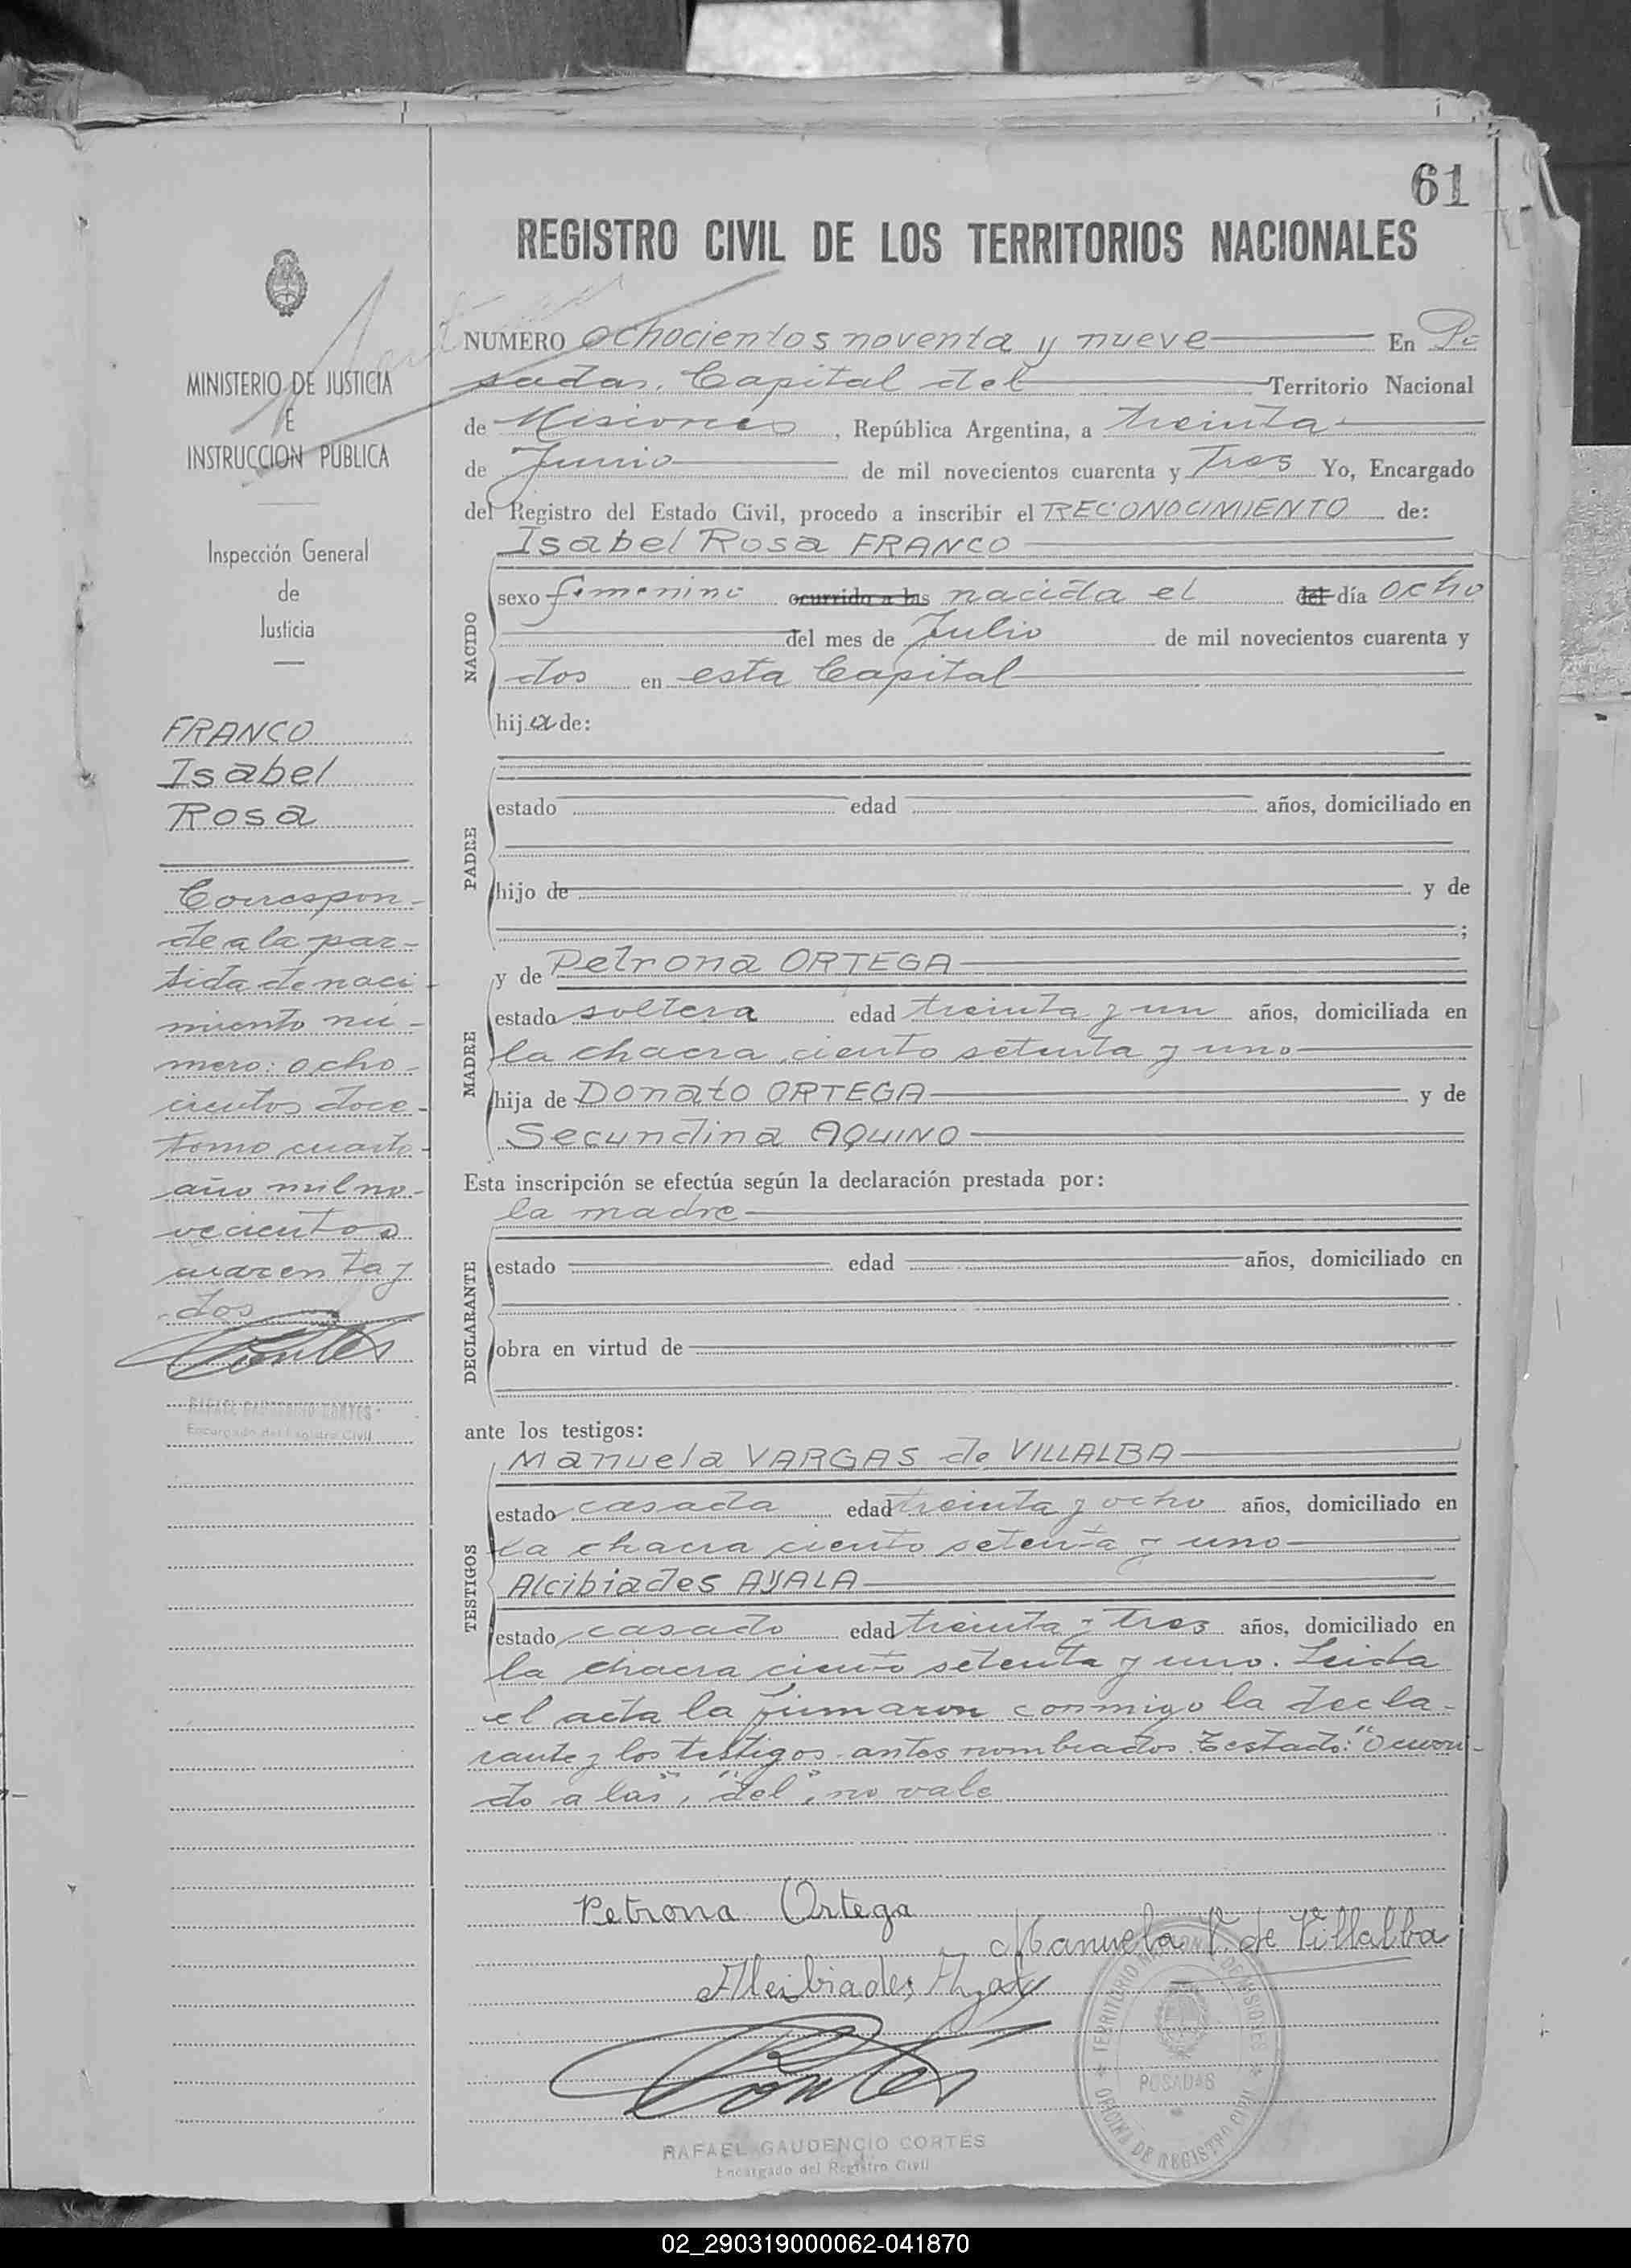 61
REGISTRO CIVIL DE LOS TERRITORIOS NACIONALES
NUMERO ochocientos noventa y nueve En Po
sadas, Capital del Territorio Nacional
de Misiones, República Argentina, a treinta
de Junio de mil novecientos cuarenta y Tres Yo, Encargado
del Registro del Estado Civil, procedo a inscribir el RECONOCIMIENTO de:
Isabel Rosa FRANCO
NACIDO
sexo femenino ocurrido a las nacida el del día ocho
del mes de Julio de mil novecientos cuarenta y
dos en esta Capital
hija de:
PADRE
estado edad años, domiciliado en
hijo de y de
;
y de Petrona ORTEGA
MADRE
estado soltera edad treinta y un años, domiciliada en
la chacra ciento setenta y uno
hija de Donato ORTEGA y de
Secundina AQUINO
Esta inscripción se efectúa según la declaración prestada por:
la madre
DECLARANTE
estado edad años, domiciliado en
obra en virtud de
ante los testigos:
Manuela VARGAS de VILLALBA
TESTIGOS
estado casada edad treinta y ocho años, domiciliado en
la chacra ciento setenta y uno
Alcibiades AYALA
estado casado edad treinta y tres años, domiciliado en
la chacra ciento setenta y uno. Leida
el acta la firmaron conmigo la decla-
rante y los testigos antes nombrados. Testado: "Ocurri-
do a las", "del", no vale
Petrona Ortega
Manuela V. de Villalba
Alcibiades Ayala
Cortés
RAFAEL GAUDENCIO CORTÉS
Encargado del Registro Civil
TERRITORIO NACIONAL DE MISIONES
POSADAS
OFICINA DE REGISTRO CIVIL
MINISTERIO DE JUSTICIA
E
INSTRUCCION PUBLICA
Inspección General
de
Justicia
FRANCO
Isabel
Rosa
Correspon-
de a la par-
tida de naci-
miento nú-
mero: ocho-
cientos doce-
tomo cuarto-
año mil no-
vecientos
cuarenta y
dos
Cortés
RAFAEL GAUDENCIO CORTÉS
Encargado del Registro Civil
02_290319000062-041870